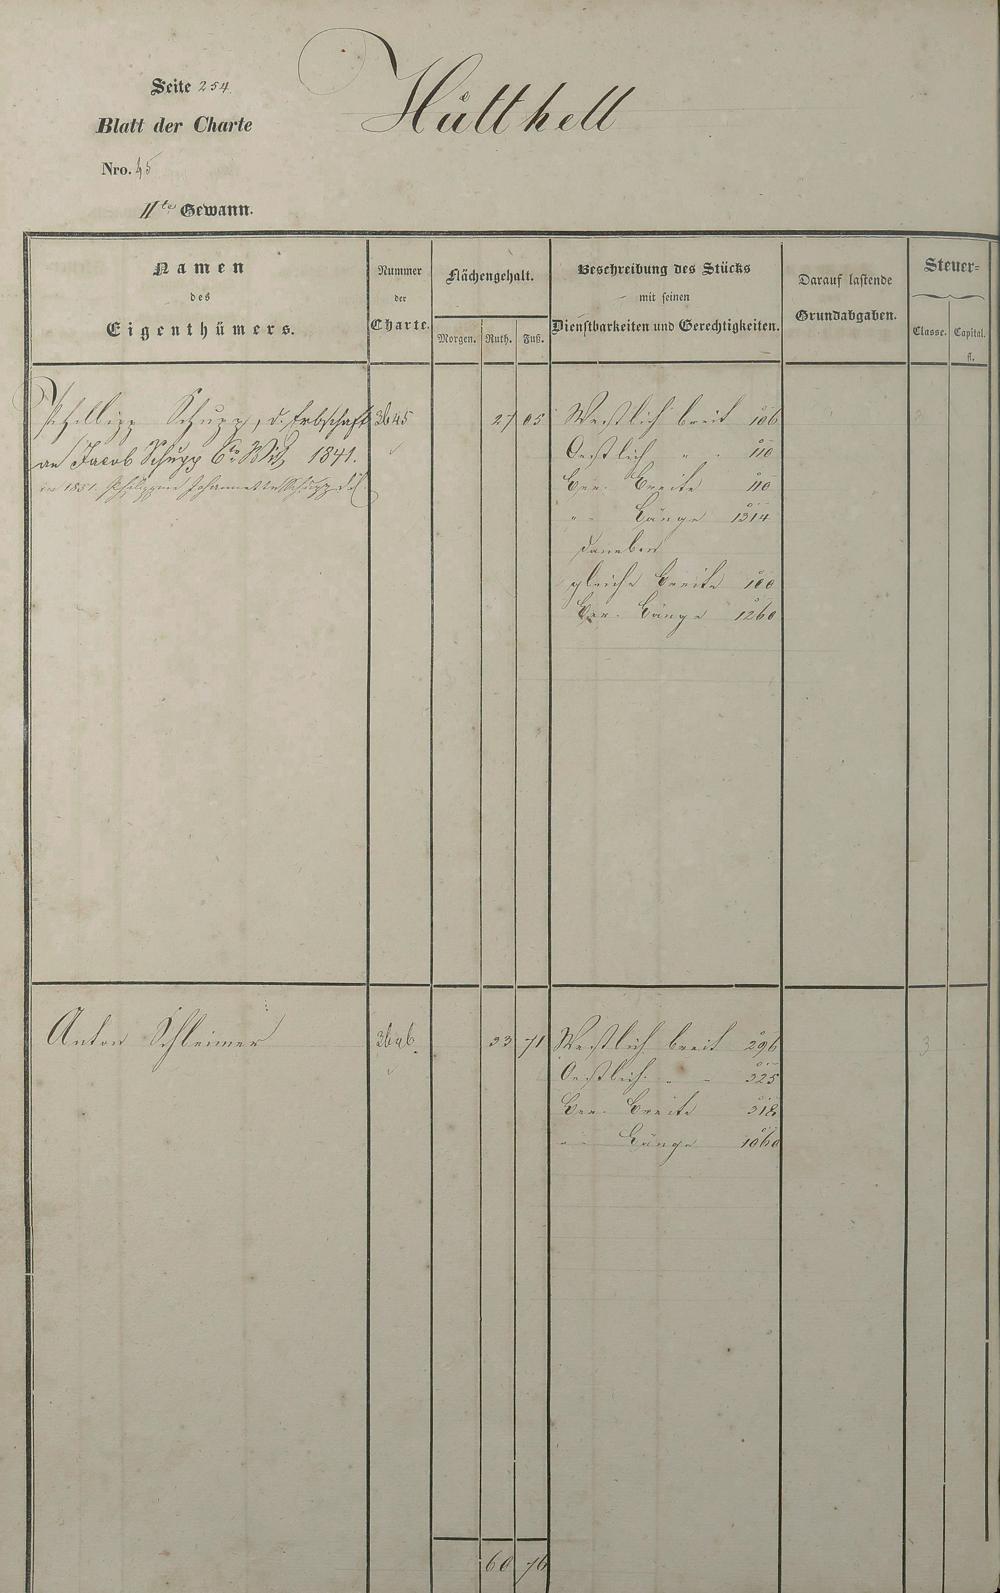 Seite 254
Hütthell
Blatt der Charte
Nro. 45
IIte Gewann.
Namen
des
Eigenthümers.
Nummer
der
Charte.
Flächengehalt.
Morgen. Ruth. Fuß.
Beschreibung des Stücks
mit seinen
Dienstbarkeiten und Gerechtigkeiten.
Darauf lastende
Grundabgaben.
Steuer-
Classe. Capital.
fl.
Phillipp Schupp, d. Erbschaft 3645 27 05 Westlich breit 106
an Jacob Schupp 6r Wit 1841. Oestlich " " 110
in 1851. Philippine Johannette Schupp Ber. Breite 110
" Länge 1314
daneben
gleiche Breite 100
Ber. Länge 1260
Anton Schleimer 3646 33 71 Westlich breit 296 3
Oestlich " " 325
Ber. Breite 318
" Länge 1060
60 76